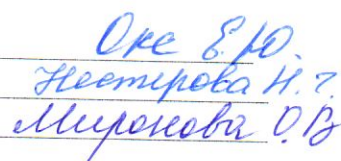 Окс Е.Ю.
Нестерова Н.Г.
Миронова О.В